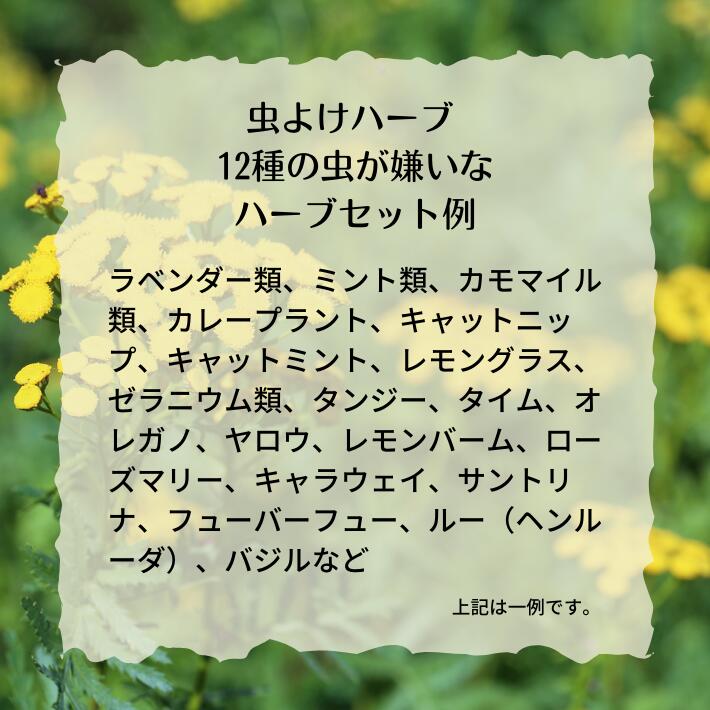 虫よけハーブ
12種の虫が嫌いな
ハーブセット例
ラベンダー類、ミント類、カモマイル
類、カレープラント、キャットニッ
プ、キャットミント、レモングラス、
ゼラニウム類、タンジー、タイム、オ
レガノ、ヤロウ、レモンバーム、ロー
ズマリー、キャラウェイ、サントリ
ナ、フューバーフュー、ルー（ヘンル
ーダ）、バジルなど
上記は一例です。